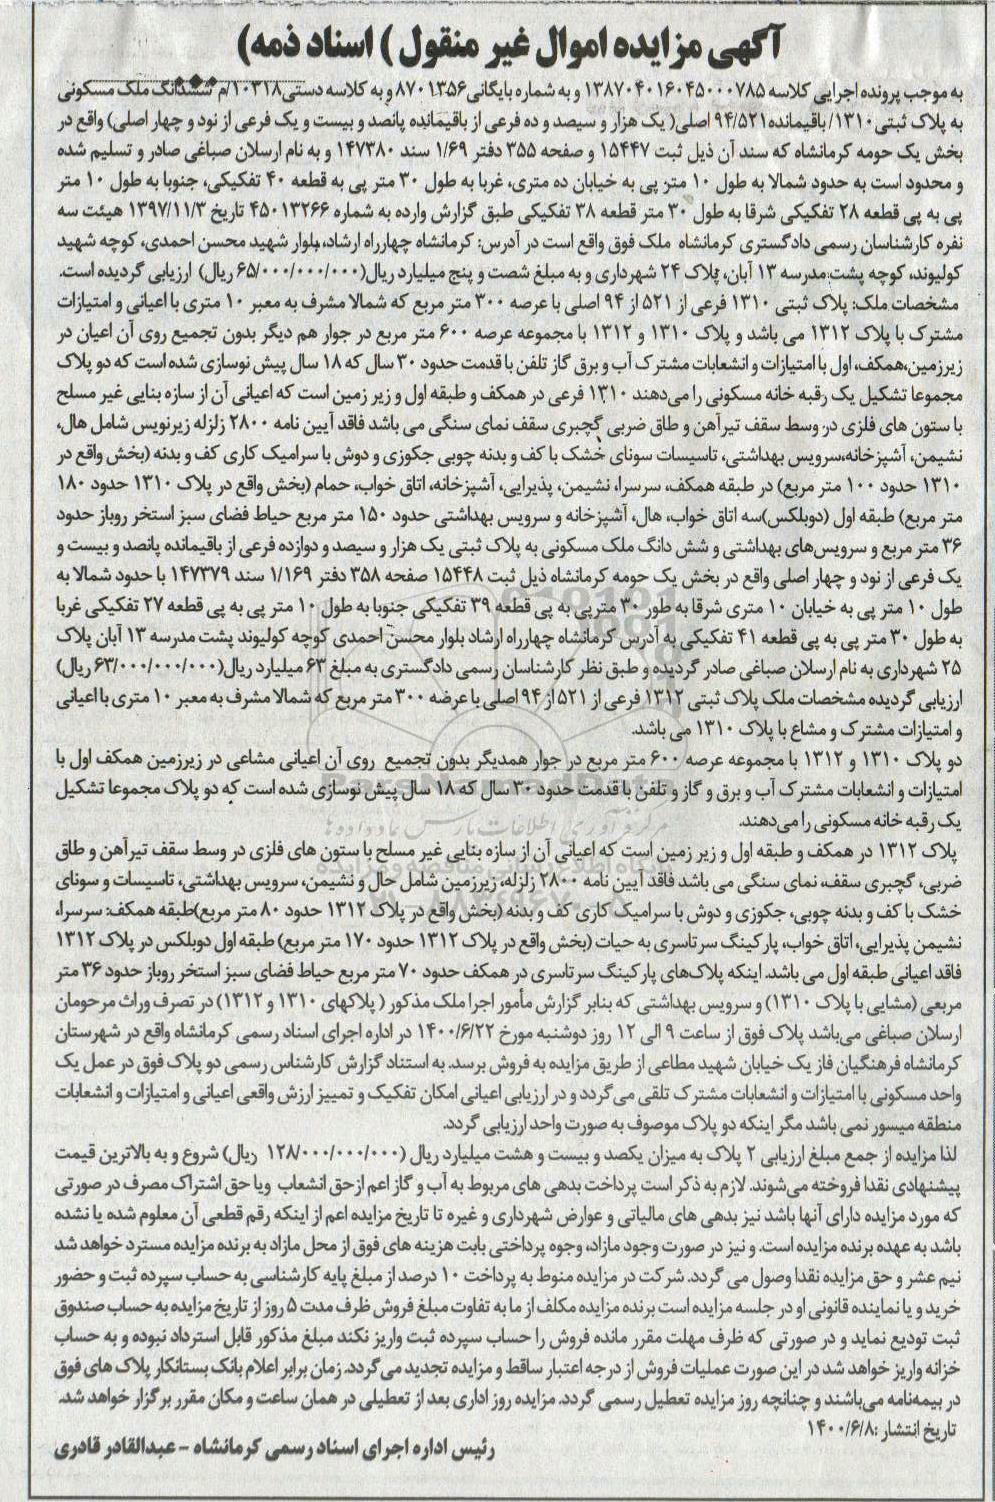 آگهی مزایده اموال غیر منقول ) اسناد ذمه)
به موجب پرونده اجرایی کلاسه ۱۳۸۷۰۴۰۱۶۰۴۵۰۰۰۷۸۵ و به شماره بایگانی۸۷۰۱۳۵۶ و به کلاسه دستی۱۰۳۱۸/م ششدانگ ملک مسکونی
به پلاک ثبتی۱۳۱۰/ باقیمانده۹۴/۵۲۱ اصلی( یک هزار و سیصد و ده فرعی از باقیمانده پانصد و بیست و یک فرعی از نود و چهار اصلی) واقع در
بخش یک حومه کرمانشاه که سند آن ذیل ثبت ۱۵۴۴۷ و صفحه ۳۵۵ دفتر ۱/۶۹ سند ۱۴۷۳۸۰ و به نام ارسلان صباغی صادر و تسلیم شده
و محدود است به حدود شمالا به طول ۱۰ متر پی به خیابان ده متری، غربا به طول ۳۰ متر پی به قطعه ۴۰ تفکیکی، جنوبا به طول ۱۰ متر
پی به پی قطعه ۲۸ تفکیکی شرقا به طول ۳۰ متر قطعه ۳۸ تفکیکی طبق گزارش وارده به شماره ۴۵۰۱۳۲۶۶ تاریخ ۱۳۹۷/۱۱/۳ هیئت سه
نفره کارشناسان رسمی دادگستری کرمانشاه ملک فوق واقع است در آدرس: کرمانشاه چهارراه ارشاد، بلوار شهید محسن احمدی، کوچه شهید
کولیوند، کوچه پشت مدرسه ۱۳ آبان، پلاک ۲۴ شهرداری و به مبلغ شصت و پنج میلیارد ریال(۶۵/۰۰۰/۰۰۰/۰۰۰ ریال) ارزیابی گردیده است.
مشخصات ملک: پلاک ثبتی ۱۳۱۰ فرعی از ۵۲۱ از ۹۴ اصلی با عرصه ۳۰۰ متر مربع که شمالا مشرف به معبر ۱۰ متری با اعیانی و امتیازات
مشترک با پلاک ۱۳۱۲ می باشد و پلاک ۱۳۱۰ و ۱۳۱۲ با مجموعه عرصه ۶۰۰ متر مربع در جوار هم دیگر بدون تجمیع روی آن اعیان در
زیرزمین،همکف، اول با امتیازات و انشعابات مشترک آب و برق گاز تلفن با قدمت حدود ۳۰ سال که ۱۸ سال پیش نوسازی شده است که دو پلاک
مجموعا تشکیل یک رقبه خانه مسکونی را می‌دهند ۱۳۱۰ فرعی در همکف و طبقه اول و زیر زمین است که اعیانی آن از سازه بنایی غیر مسلح
با ستون های فلزی در وسط سقف تیرآهن و طاق ضربی گچبری سقف نمای سنگی می باشد فاقد آیین نامه ۲۸۰۰ زلزله زیرنویس شامل هال،
نشیمن، آشپزخانه،سرویس بهداشتی، تاسیسات سونای خشک با کف و بدنه چوبی جکوزی و دوش با سرامیک کاری کف و بدنه (بخش واقع در
۱۳۱۰ حدود ۱۰۰ متر مربع) در طبقه همکف، سرسرا، نشیمن، پذیرایی، آشپزخانه، اتاق خواب، حمام (بخش واقع در پلاک ۱۳۱۰ حدود ۱۸۰
متر مربع) طبقه اول (دوبلکس)سه اتاق خواب، هال، آشپزخانه و سرویس بهداشتی حدود ۱۵۰ متر مربع حیاط فضای سبز استخر روباز حدود
۳۶ متر مربع و سرویس‌های بهداشتی و شش دانگ ملک مسکونی به پلاک ثبتی یک هزار و سیصد و دوازده فرعی از باقیمانده پانصد و بیست و
یک فرعی از نود و چهار اصلی واقع در بخش یک حومه کرمانشاه ذیل ثبت ۱۵۴۴۸ صفحه ۳۵۸ دفتر ۱/۱۶۹ سند ۱۴۷۳۷۹ با حدود شمالا به
طول ۱۰ متر پی به خیابان ۱۰ متری شرقا به طور ۳۰ مترپی به پی قطعه ۳۹ تفکیکی جنوبا به طول ۱۰ متر پی به پی قطعه ۲۷ تفکیکی غربا
به طول ۳۰ متر پی به پی قطعه ۴۱ تفکیکی به آدرس کرمانشاه چهارراه ارشاد بلوار محسن احمدی کوچه کولیوند پشت مدرسه ۱۳ آبان پلاک
۲۵ شهرداری به نام ارسلان صباغی صادر گردیده و طبق نظر کارشناسان رسمی دادگستری به مبلغ ۶۳ میلیارد ریال(۶۳/۰۰۰/۰۰۰/۰۰۰ ریال)
ارزیابی گردیده مشخصات ملک پلاک ثبتی ۱۳۱۲ فرعی از ۵۲۱ از ۹۴ اصلی با عرضه ۳۰۰ متر مربع که شمالا مشرف به معبر ۱۰ متری با اعیانی
و امتیازات مشترک و مشاع با پلاک ۱۳۱۰ می باشد.
دو پلاک ۱۳۱۰ و ۱۳۱۲ با مجموعه عرصه ۶۰۰ متر مربع در جوار همدیگر بدون تجمیع روی آن اعیانی مشاعی در زیرزمین همکف اول با
امتیازات و انشعابات مشترک آب و برق و گاز و تلفن با قدمت حدود ۳۰ سال که ۱۸ سال پیش نوسازی شده است که دو پلاک مجموعا تشکیل
یک رقبه خانه مسکونی را می‌دهند.
پلاک ۱۳۱۲ در همکف و طبقه اول و زیر زمین است که اعیانی آن از سازه بنایی غیر مسلح با ستون های فلزی در وسط سقف تیرآهن و طاق
ضربی، گچبری سقف، نمای سنگی می باشد فاقد آیین نامه ۲۸۰۰ زلزله، زیرزمین شامل حال و نشیمن، سرویس بهداشتی، تاسیسات و سونای
خشک با کف و بدنه چوبی، جکوزی و دوش با سرامیک کاری کف و بدنه (بخش واقع در پلاک ۱۳۱۲ حدود ۸۰ متر مربع)طبقه همکف: سرسرا،
نشیمن پذیرایی، اتاق خواب، پارکینگ سرتاسری به حیات (بخش واقع در پلاک ۱۳۱۲ حدود ۱۷۰ متر مربع) طبقه اول دوبلکس در پلاک ۱۳۱۲
فاقد اعیانی طبقه اول می باشد. اینکه پلاک‌های پارکینگ سرتاسری در همکف حدود ۷۰ متر مربع حیاط فضای سبز استخر روباز حدود ۳۶ متر
مربعی (مشایی با پلاک ۱۳۱۰) و سرویس بهداشتی که بنابر گزارش مأمور اجرا ملک مذکور ( پلاکهای ۱۳۱۰ و ۱۳۱۲) در تصرف وراث مرحومان
ارسلان صباغی می‌باشد پلاک فوق از ساعت ۹ الی ۱۲ روز دوشنبه مورخ ۱۴۰۰/۶/۲۲ در اداره اجرای اسناد رسمی کرمانشاه واقع در شهرستان
کرمانشاه فرهنگیان فاز یک خیابان شهید مطاعی از طریق مزایده به فروش برسد. به استناد گزارش کارشناس رسمی دو پلاک فوق در عمل یک
واحد مسکونی با امتیازات و انشعابات مشترک تلقی می‌گردد و در ارزیابی اعیانی امکان تفکیک و تمییز ارزش واقعی اعیانی و امتیازات و انشعابات
منطقه میسور نمی باشد مگر اینکه دو پلاک موصوف به صورت واحد ارزیابی گردد.
لذا مزایده از جمع مبلغ ارزیابی ۲ پلاک به میزان یکصد و بیست و هشت میلیارد ریال (۱۲۸/۰۰۰/۰۰۰/۰۰۰ ریال) شروع و به بالاترین قیمت
پیشنهادی نقدا فروخته می‌شوند. لازم به ذکر است پرداخت بدهی های مربوط به آب و گاز اعم ازحق انشعاب ویا حق اشتراک مصرف در صورتی
که مورد مزایده دارای آنها باشد نیز بدهی های مالیاتی و عوارض شهرداری و غیره تا تاریخ مزایده اعم از اینکه رقم قطعی آن معلوم شده یا نشده
باشد به عهده برنده مزایده است. و نیز در صورت وجود مازاد، وجوه پرداختی بابت هزینه های فوق از محل مازاد به برنده مزایده مسترد خواهد شد
نیم عشر و حق مزایده نقدا وصول می گردد. شرکت در مزایده منوط به پرداخت ۱۰ درصد از مبلغ پایه کارشناسی به حساب سپرده ثبت و حضور
خرید و یا نماینده قانونی او در جلسه مزایده است برنده مزایده مکلف از ما به تفاوت مبلغ فروش ظرف مدت ۵ روز از تاریخ مزایده به حساب صندوق
ثبت تودیع نماید و در صورتی که ظرف مهلت مقرر مانده فروش را حساب سپرده ثبت واریز نکند مبلغ مذکور قابل استرداد نبوده و به حساب
خزانه واریز خواهد شد در این صورت عملیات فروش از درجه اعتبار ساقط و مزایده تجدید می گردد. زمان برابر اعلام بانک بستانکار پلاک های فوق
در بیمه‌نامه می‌باشند و چنانچه روز مزایده تعطیل رسمی گردد. مزایده روز اداری بعد از تعطیلی در همان ساعت و مکان مقرر برگزار خواهد شد.
تاریخ انتشار :۱۴۰۰/۶/۸
رئیس اداره اجرای اسناد رسمی کرمانشاه - عبدالقادر قادری
ParsNamadData